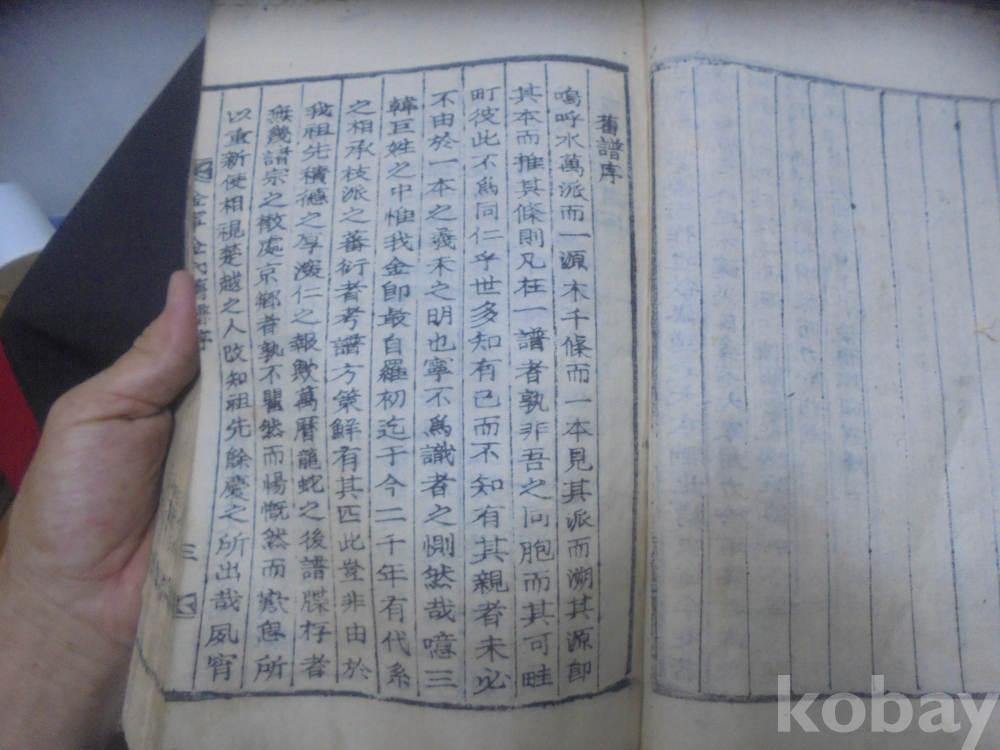 舊譜序
嗚呼水萬派而一源木千條而一本見其派而溯其源卽
其本而推其條則凡在一譜者孰非吾之同胞而其可畦
町彼此不爲同仁乎世多知有己而不知有其親者未必
不由於一本之義未之明也寧不爲識者之惻然哉噫三
韓巨姓之中惟我金卽最自羅初迄于今二千年有代系
之相承枝派之蕃衍者考譜方策鮮有其匹此豈非由於
我祖先積德之厚深仁之報歟萬曆龍蛇之後譜牒存者
無幾諸宗之散處京鄕者孰不瞿然而惕慨然而歎思所
以重新使相視楚越之人改知祖先餘慶之所出哉夙宵
金 金氏舊譜序
三
kobay